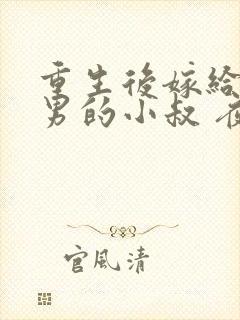 重生後嫁給
男的小叔
官風清